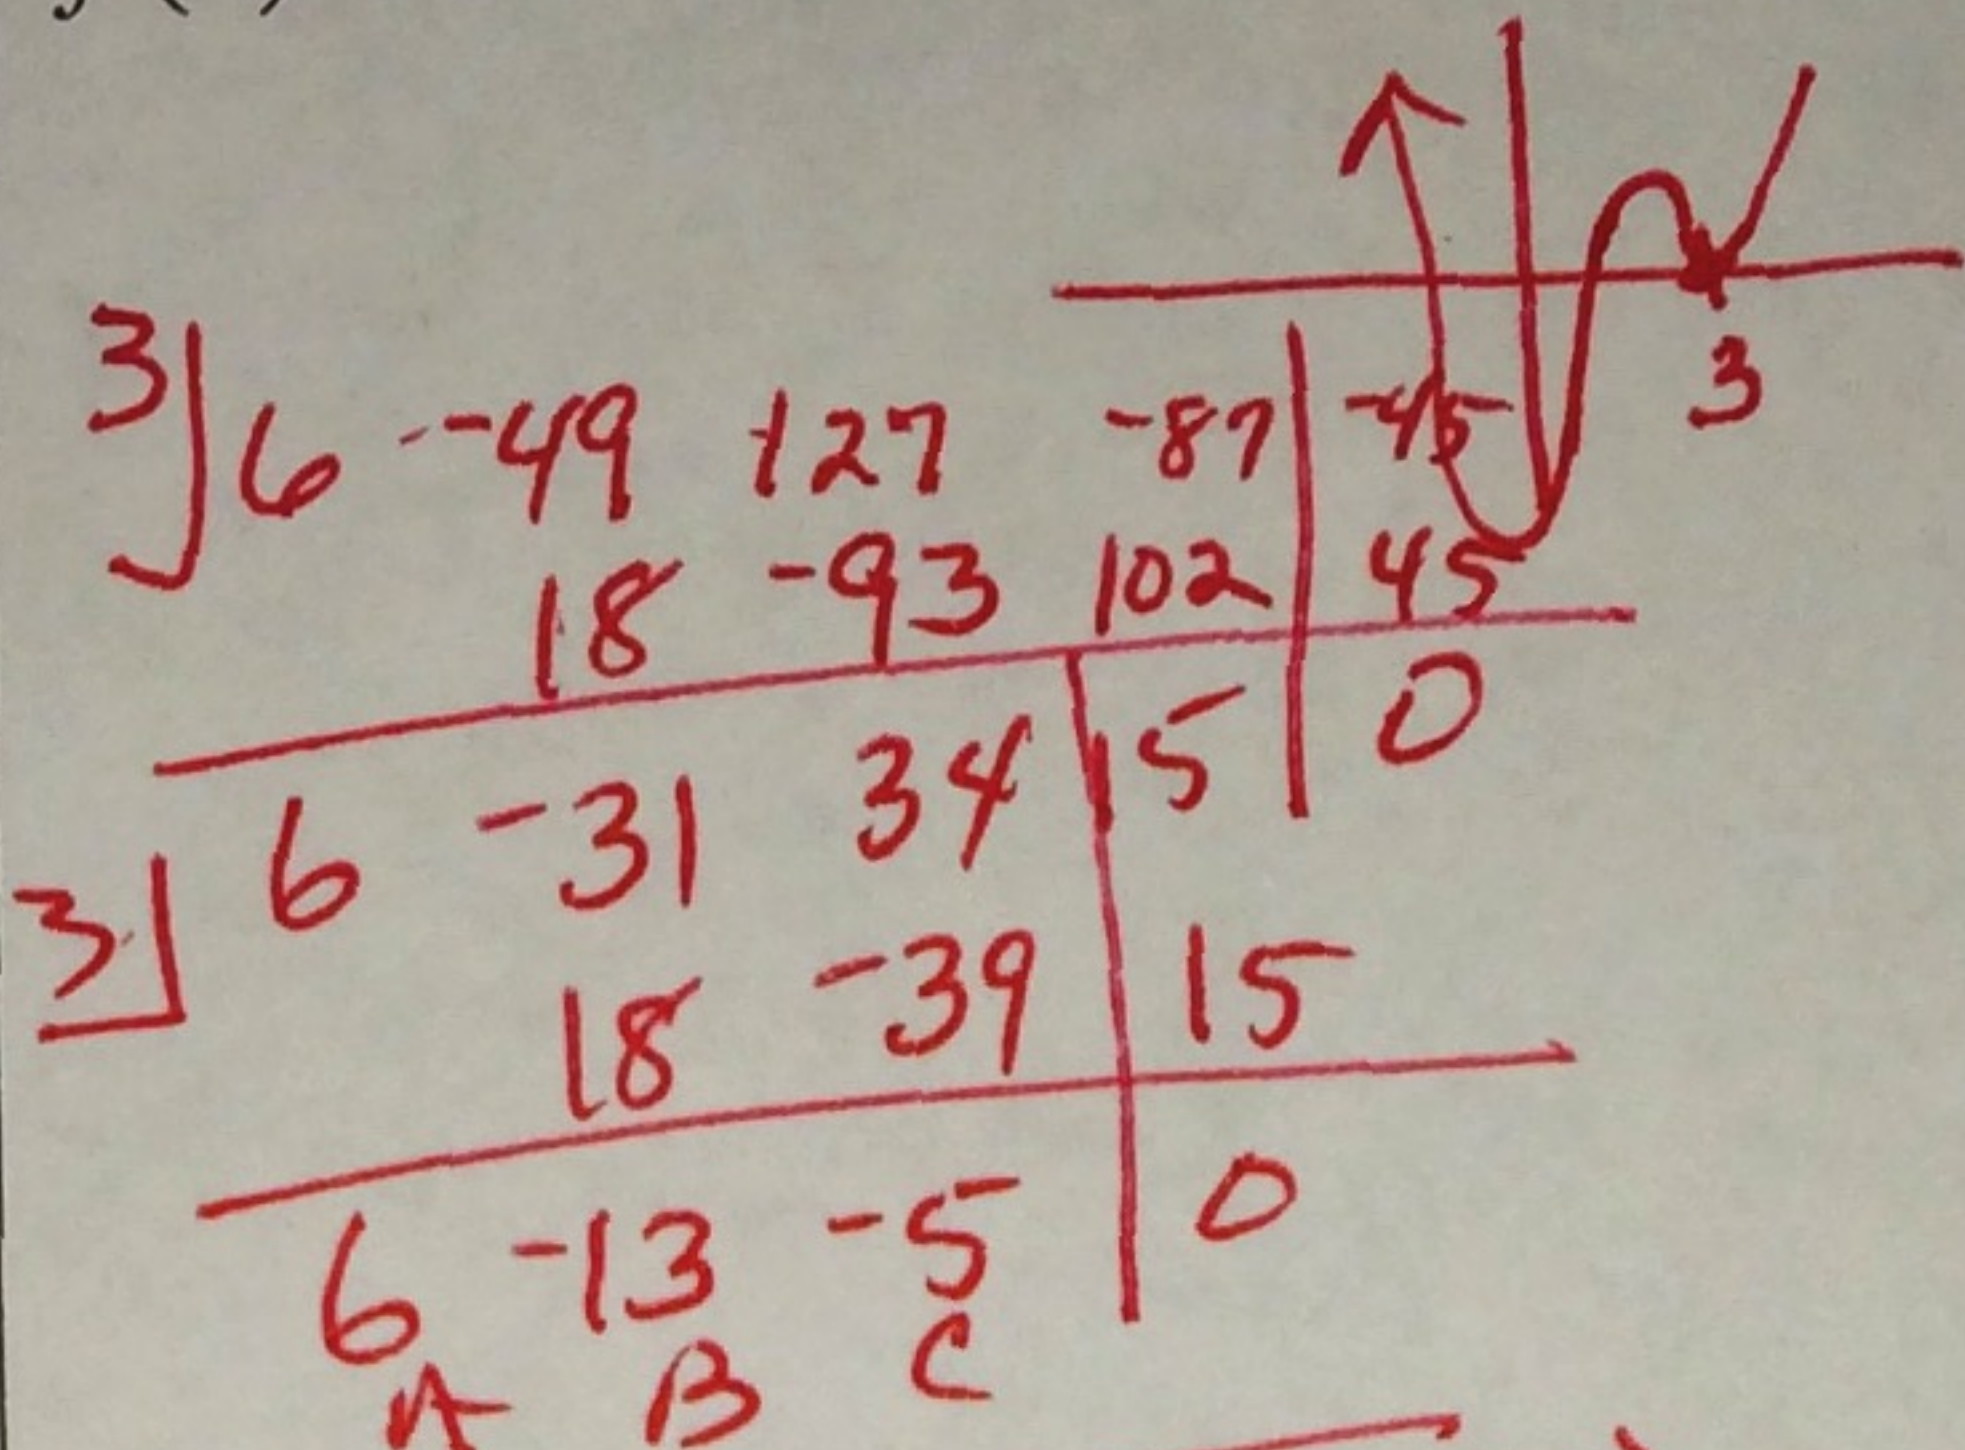 3 6 -49 127 -87 -45
18 -93 102 45
6 -31 34 15 0
3
18 -39 15
6 -13 -5 0
A B C
3